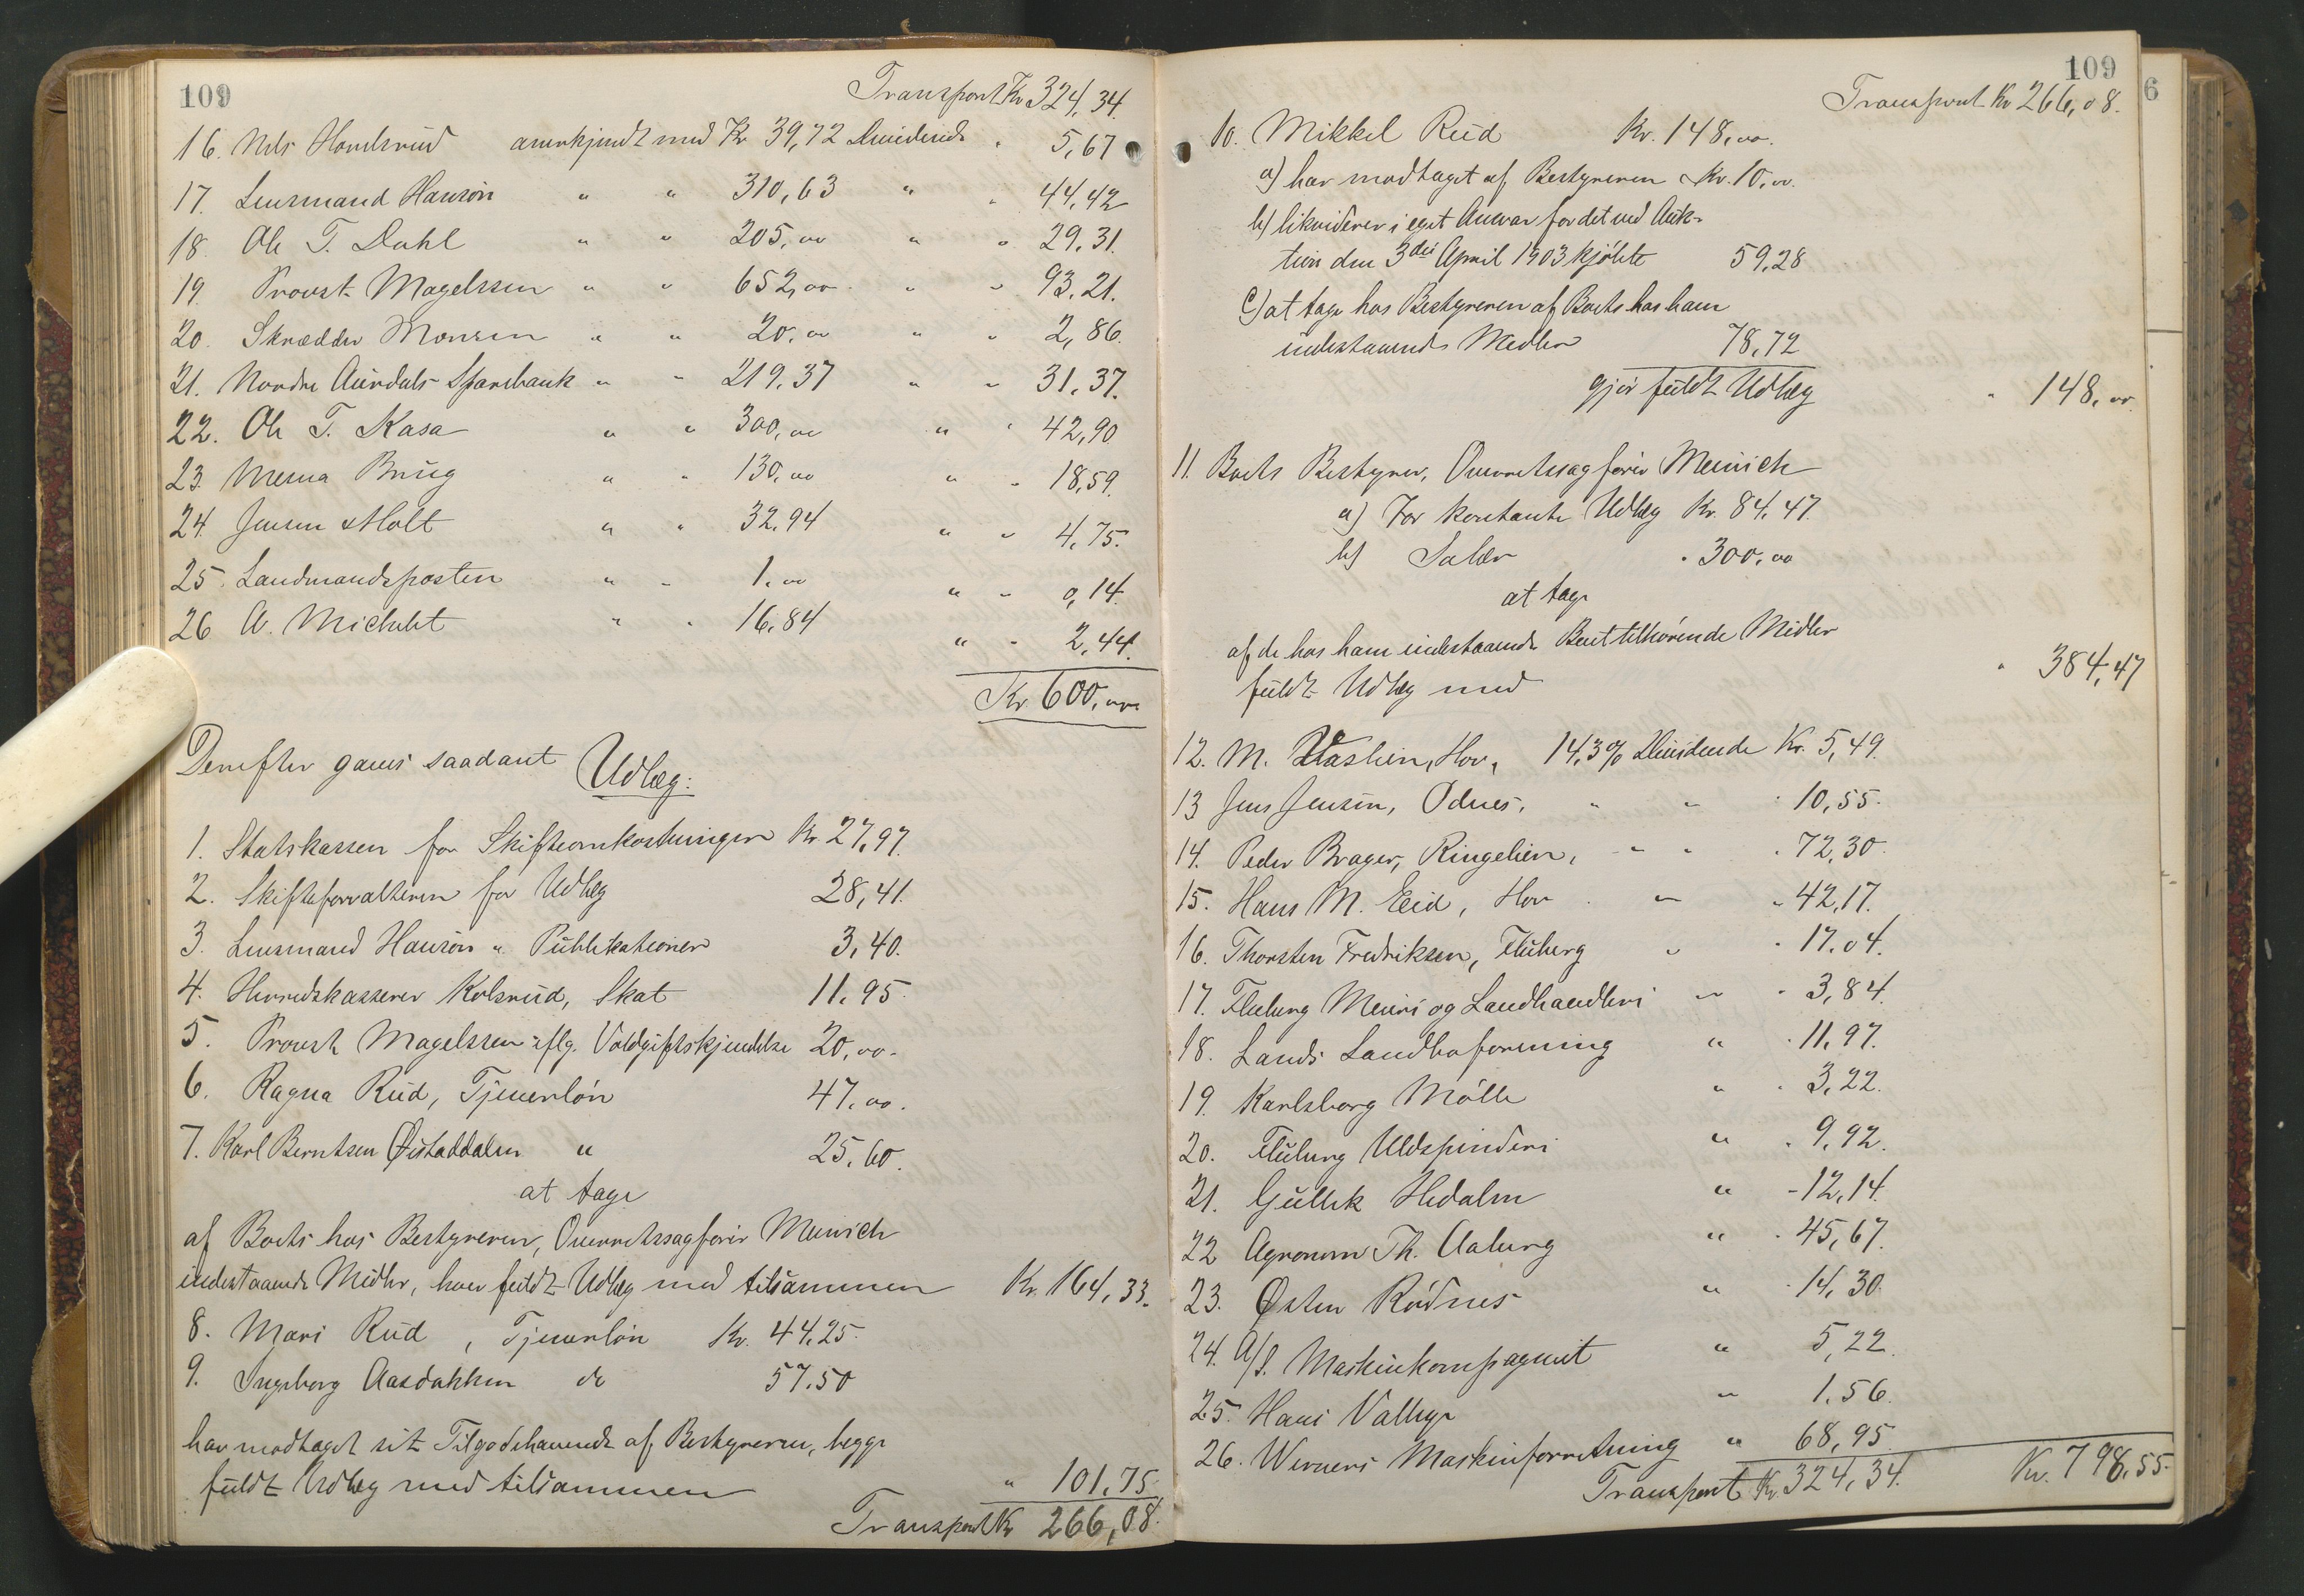 109
Transport Kr 324,34.
16. Nels Homlerud anerkjendt med Kr 39,72 Dividende " 5,67
17. Lensmand Hanson " " 310,63 " " 44,42
18. Ole T. Dahl " " 205,00 " " 29,31.
19. Provst Magelssen " " 652,00 " " 93,21.
20. Skrædder Monsen " " 20,00 " " 2,86.
21. Nordre Aurdals Sparebank " " 219,37 " " 31,37.
22. Ole T. Kasa " " 300,00 " " 42,90
23. Mesna Brug " " 130,00 " " 18,59.
24. Jensen & Holt " " 32,94 " " 4,75.
25. Landmandsposten " " 1,00 " " 0,14.
26 A. Michelet " " 16,84 " " 2,44.
Kr 600,00
Derefter gaves saadant Udlæg:
1. Statskassen for Skifteomkostninger Kr. 27,97.
2. Skifteforvalteren for Udlæg 28,41.
3. Lensmand Hanson " Publikationer 3,40.
4. Herredskasserer Kolsrud, Skat 11,95.
5. Provst Magelssen iflg. Voldgiftskjendelse 20,00.
6. Ragna Rud, Tjenerløn 47,00.
7. Karl Berntsen Øistaddalen " 25,60.
at tage
af Boets hos Bestyreren, Overretssagfører Meinich
indestaaende Midler, hver fuldt Udlæg med tilsammen Kr. 164,33.
8. Mari Rud, Tjenerløn Kr. 44,25.
9. Ingeborg Aasdokken do 57,50
har modtaget sit Tilgodehavende af Bestyreren, begge
fuldt Udlæg med tilsammen " 101,75.
Transport Kr 266,08.
109
6
Transport Kr 266,08.
10. Mikkel Rud Kr. 148,00.
a) har modtaget af Bestyreren Kr. 10,00.
b) likviderer i eget Ansvar for det ved Auk-
tion den 3die April 1903 kjøbte 59,28
c) at tage hos Bestyreren af Boets hos ham
indestaaende Medler 78,72
gjør fuldt Udlæg " 148,00.
11. Boets Bestyrer, Overretssagfører Meinich
a) For kontante Udlæg Kr. 84,47.
b) Salær " 300,00
at tage
af de hos ham indestaaende Boet tilhørende Midler
fuldt Udlæg med " 384,47
12. M. Haslien, Hov, 14,3% Dividende Kr. 5,49.
13 Jens Jensen, Odnes, " " " 10,55.
14. Peder Brager, Ringelien, " " " 72,30.
15. Hans M. Eid, Hov " " 42,17.
16. Thorsten Fredriksen, Fluberg " " 17,04.
17. Fluberg Meieri og Landhandleri " " 3,84.
18. Lands Landboforening " " 11,97.
19. Karlsborg Mølle " " 3,22.
20. Fluberg Uldspinderi " " 9,92.
21. Gullik Hedalen " " 12,14.
22 Agronom Th. Aaberg " " 45,67.
23. Østen Rødnes " " 14,30.
24. A/S. Maskinkompagniet " 5,22.
25. Hans Vallege " 1,56.
26. Werners Maskinforretning " 68,95.
Transport Kr. 324,34. Kr. 798,55.